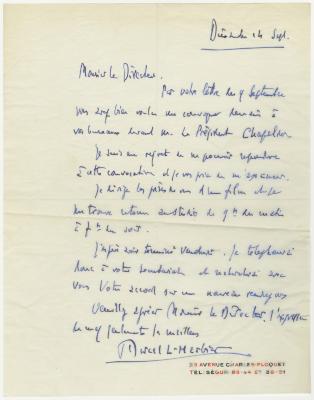 Dimanche 14 Sept.
Monsieur le Directeur.
Par votre lettre du 9 Septembre
vous avez bien voulu me convoquer demain à
vos bureaux devant M. le Président Chapelain
Je suis au regret de ne pouvoir répondre
à cette convocation et je vous prie de m'excuser.
Je dirige les prises de vues d'un film et je
me trouve retenu au studio de 9h du matin
à 7h du soir.
J'espère avoir terminé vendredi. Je téléphonerai
donc à votre secrétariat et rechercherai avec
vous votre accord sur un nouveau rendez-vous
Veuillez agréer Monsieur le Directeur l'expression
de mes sentiments les meilleurs
Marcel L'Herbier
23 AVENUE CHARLES-FLOQUET
TEL: SÉGUR